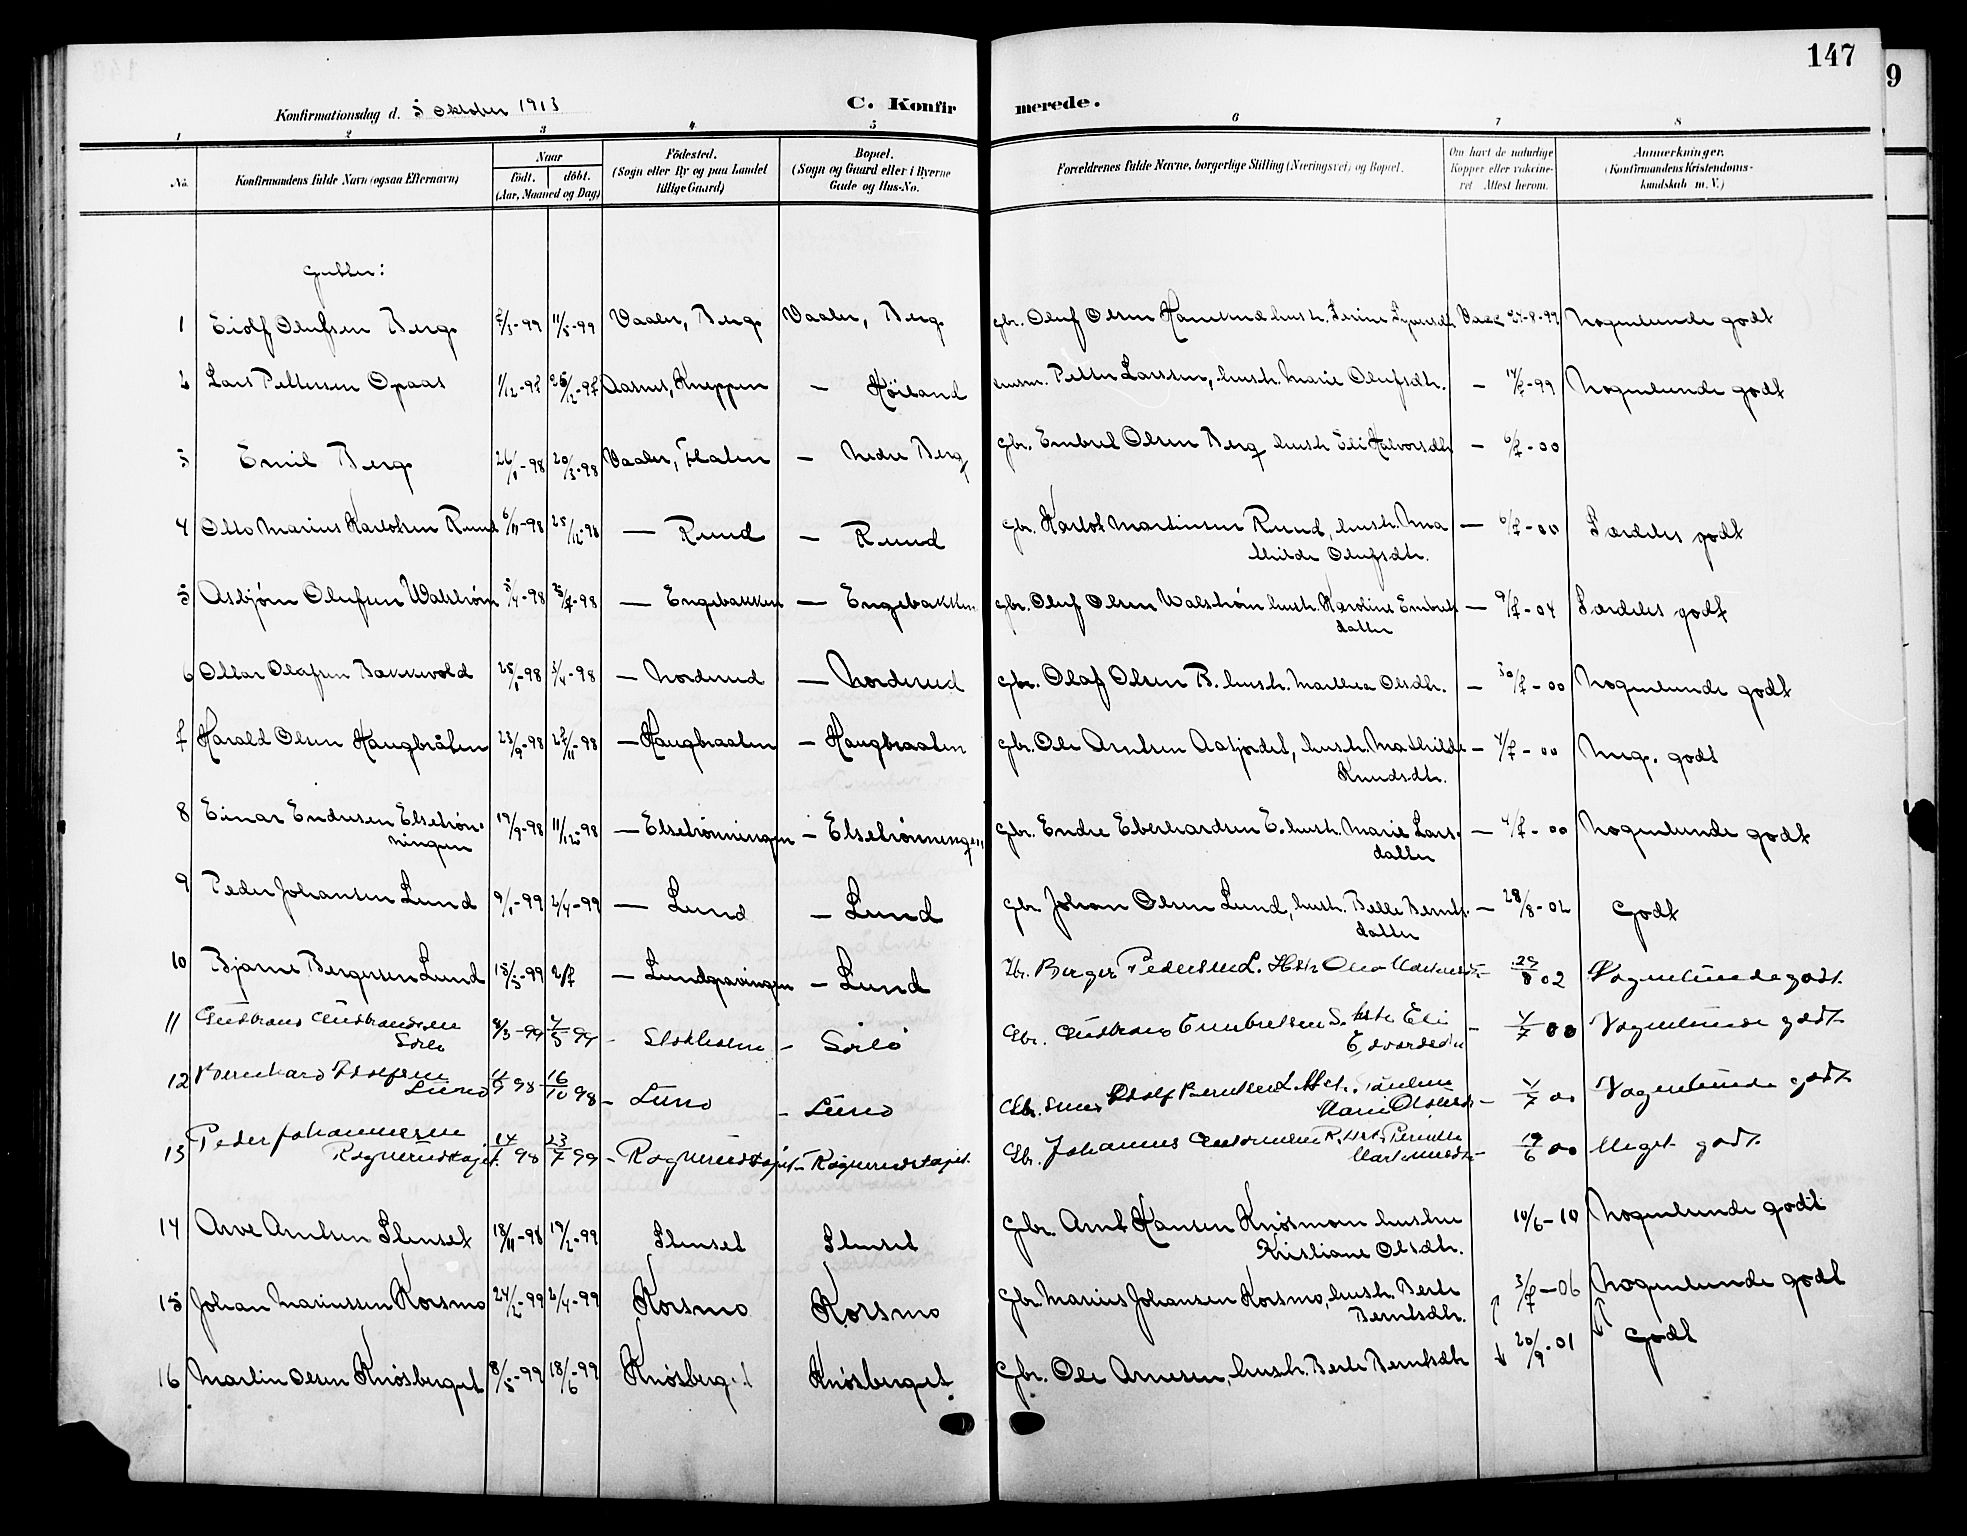 147
9
Konfirmationsdag d. 5 Oktober 1913
C. Konfirmerede.
1 2 3 4 5 6 7 8
No.
Konfirmandens fulde Navn (ogsaa Efternavn)
Naar
født. døbt.
(Aar, Maaned og Dag)
Fødested.
(Sogn eller By og paa Landet
tillige Gaard)
Bopæl.
(Sogn og Gaard eller i Byerne
Gade og Hus-No.
Forældrenes fulde Navne, borgerlige Stilling (Næringsvei) og Bopæl.
Om havt de naturlige
Kopper eller vakcine-
ret Attest herom.
Anmærkninger.
(Konfirmandens Kristendoms-
kundskab m. V.)
Gutter:
1 Eiolf Olufsen Berg 11/5-99 Vaaler, Berg Vaaler, Berg gbr. Oluf Olsen hustr. Vacc 27-8-99 Nogenlunde godt
2 Lars Pettersen Opaas 1/12-97 26/12-97 Aasnes, Kneppen — Petter Larssen, hustr. Marie Olufsdtr. — 14/7-99 Nogenlunde godt
3 Emil Berg 26/1-98 20/3-98 Vaaler, — Nedre Berg gbr. Embret Olsen Berg hustr Eli Halvorsdtr — 6/7-00
4 Otto Marius Karlotsen Ruud 6/11-98 25/12-98 — Ruud — Ruud gbr. Karlot Martinsen Ruud, hustr. Ma
thilde Olufsdtr. — 6/7-00 Særdeles godt
5 Asbjørn Olufsen Walstrøm 5/4-98 -98 — Engebakken — Engebakken gbr. Oluf Olsen Walstrøm hustr. Karoline Embrets
datter — 9/7-04 Særdeles godt
6 Ottar Olafsen Bakkevold 25/1-98 3/4-98 — Norderud — Norderud gbr. Olaf Olsen B. hustr. Marthea Olsdtr. — 30/7-00 Nogenlunde godt
7 Harald Olsen Haugbråten 23/9-98 27/11-98 — Haugbraaten — Haugbraaten gbr. Ole Arntsen hustr. Mathilde
Knudsdtr. — 4/7-00 Meg. godt
8 Einar Endresen Elsetrøn-
ningen 19/9-98 11/12-98 — Elsetrønningen — Elsetrønningen gbr. Endre Eberhardsen E. hustr. Marie Lars-
datter — 4/7-00 Nogenlunde godt
9 Peder Johansen Lund 9/1-99 2/4-99 — Lund — Lund gbr. Johan Olsen Lund, hustr. Belle Bernts-
datter — 28/8-02 Godt
10 Bjarne Bergersen Lund 15/5-99 2/7 — — Lund Gbr. Berger Pedersen L. Hstr — 29/8 02 Nogenlunde godt.
11 Gudbrand Gudbrandsen
Sørli 8/3-99 7/5 99 - Stokholm - Sørli Gbr. Gudbrand Embretsen S. hstr Eli
Edvardsdtr - 4/7 00 Nogenlunde godt
12 Bernhard Adolfsen
Lund 98 16/10 98 - Lund - Lund Gbr. Adolf Berntsen L. Hstr.
Marie - 4/7 00 Nogenlunde godt
13 Peder Johannesen
14 98 23/7 99 - Gbr. Johannes R. Hstr. Pernille
Martinusdtr - 19/6 00 Meget godt
14 Arve Arntsen Stenset 18/11-98 19/2-99 Stenset Stenset Gbr. Arnt Hansen Knøsmoen hustru
Kristiane Olsdtr. 10/6-10 Nogenlunde godt
15 Johan Mariussen Korsmo 24/2-99 2/4-99 Korsmo Korsmo Gbr. Marius Johansen Korsmo, hustr. Berte
Berntsdtr. 3/7-06 Nogenlunde godt
16 Martin Olsen Knøsberget 8/5-99 18/6-99 Knøsberget Knøsberget Gbr. Ole Arnesen, hustr. Berte Berntsdtr 20/9-01 Godt